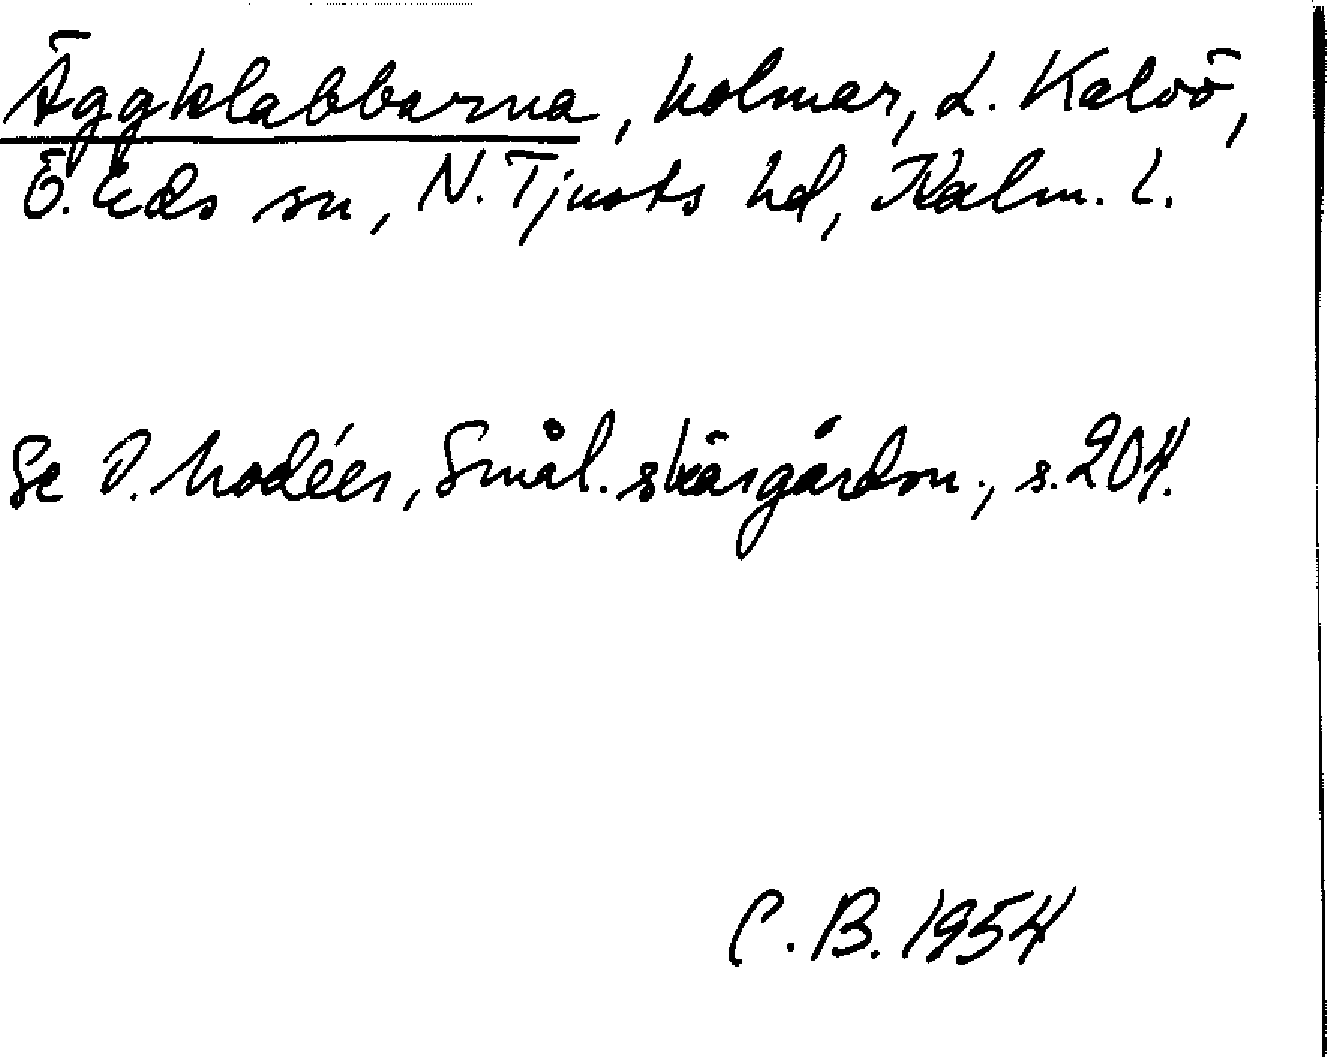 Äggklabbarna, holmar, L. Kalvö,
Ö. Eds sn, N. Tjusts hd, Kalm. l.
Se D. Modéer, Smål. skärgårdsn., s. 204.
C. B. 1954